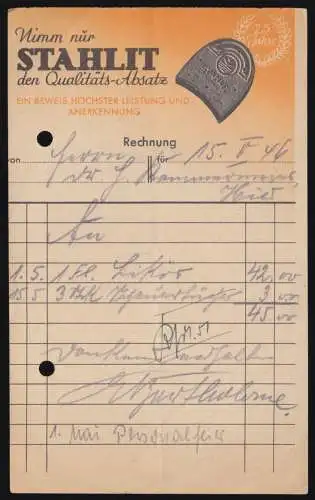 Nimm nur
STAHLIT
den Qualitäts-Absatz
EIN BEWEIS HÖCHSTER LEISTUNG UND
ANERKENNUNG
25 Jahre
Rechnung
von Herrn für 15. V 46
Dr.
Hier
An
1. 5. 1 Fl. Likör 42,00
15. 5 3 3,00
45,00
Dankend erhalten
1. Mai Personalfeier